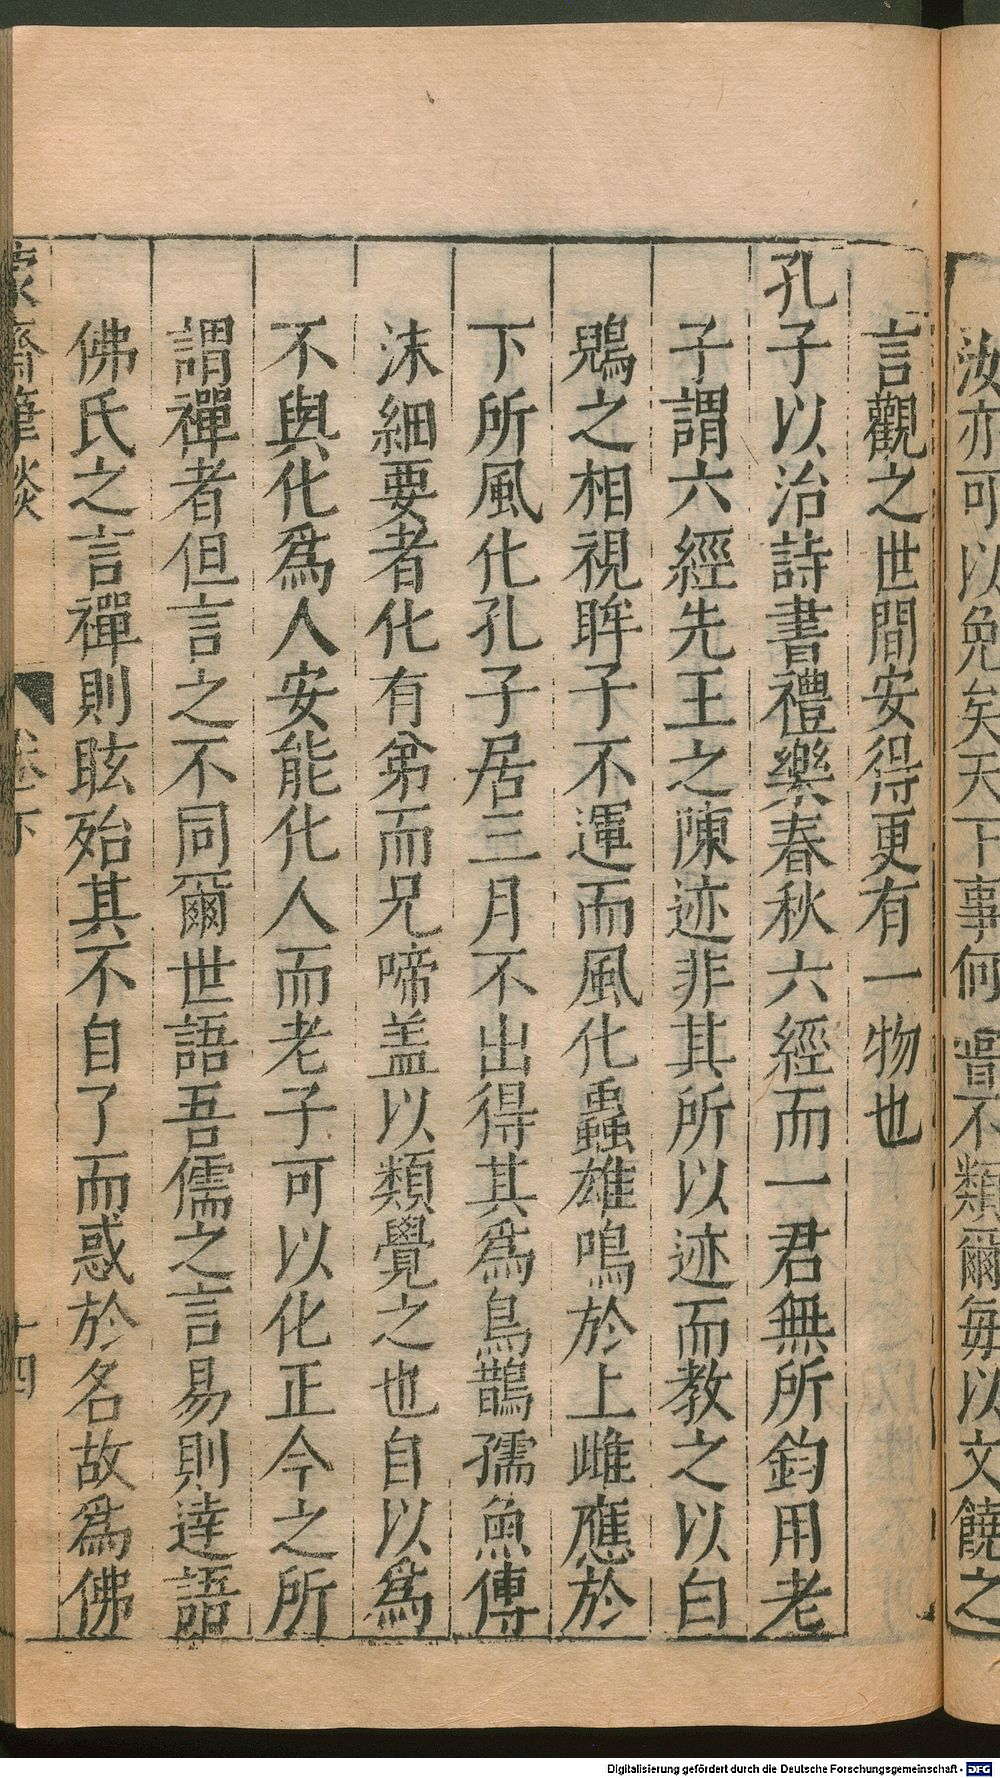 汝亦可以免矣天下事何嘗不類爾每以文饒之
言觀之世間安得更有一物也
孔子以治詩書禮樂春秋六經而一君無所鈞用老
子謂六經先王之陳迹非其所以迹而教之以白
鶂之相視眸子不運而風化蟲雄鳴於上雌應於
下所風化孔子居三月不出得其為烏鵲孺魚傳
沫細要者化有弟而兄啼盖以類覺之也自以為
不與化為人安能化人而老子可以化正今之所
謂禪者但言之不同爾世語吾儒之言易則逹語
佛氏之言禪則眩殆其不自了而惑於名故為佛
蒙齋筆談 卷下 十四
Digitalisierung gefördert durch die Deutsche Forschungsgemeinschaft - DFG